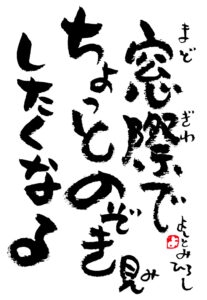 窓際で
まどぎわ
ちょっとのぞき見
み
したくなる
よしとみひろし